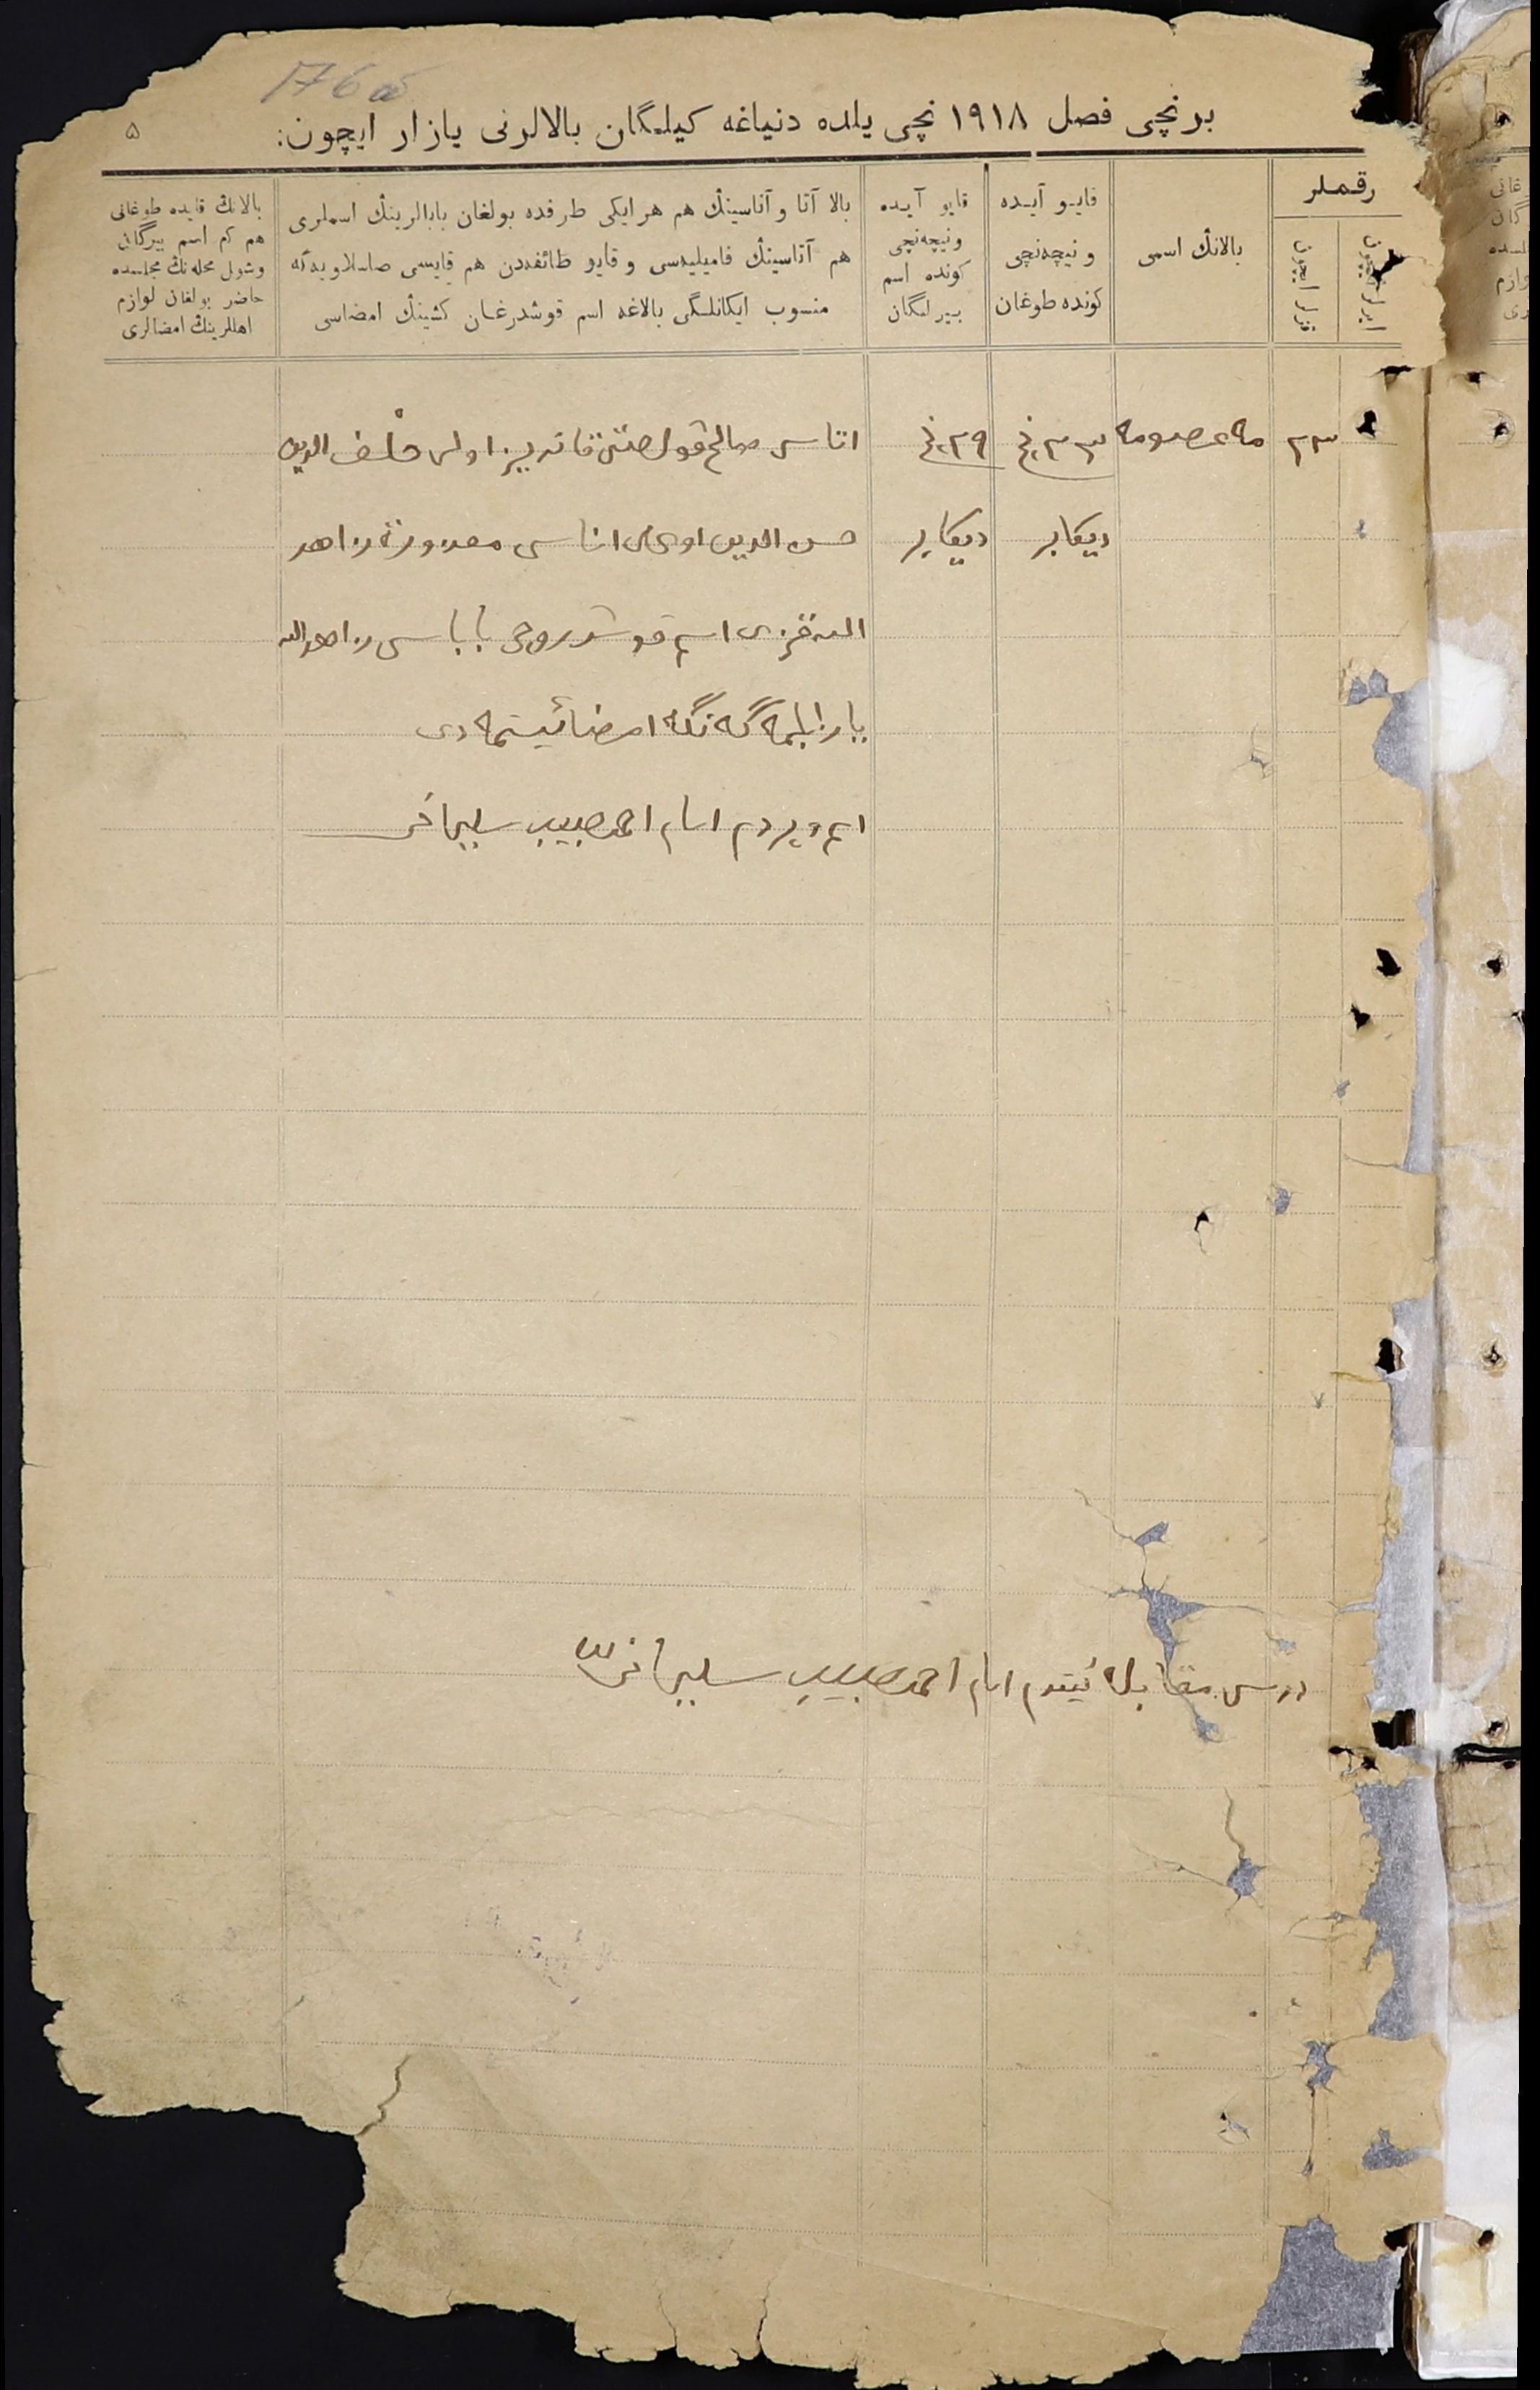 برنچی فصل ١٩١٨ نچی یلده دنیاغه کیلمگان بالالرنی یازار ایچون:
۵
رقملر
ایرلر ایچون
قزلر ایچون
بالانڭ اسمی
قایو آیده
و نیچه‌نچی
کونده طوغان
قایو آیده
و نیچه‌نچی
کونده اسم
بیرلمگان
بالا آتا و آناسینڭ هم هر ایکی طرفده بولغان بابالرینڭ اسملری
هم آتاسینڭ فامیلیه‌سی و قایو طائفه‌دن هم قایسی
منسوب ایکانلگی بالاغه اسم قوشدرغان کشینڭ امضاسی
بالانڭ قایده طوغانی
هم کم اسم بیرگانی
و شول محله‌نڭ مجلسده
حاضر بولغان لوازم
اهللرینڭ امضالری
٢٣
معصومه
٢٣ نچی
دیکابر
٢٩ نچی
دیکابر
اتاسی صالح اولی خلف الدین
حسن الدین اوغلی اناسی زاهد
الله قزی اسم قوشدروچی باباسی زاهدالله
یازا بلمگانگه امضا ئیتمادی
اسم ویردم امام احمدحبیب سلیمانی
درست مقابله ئیتدم امام احمدحبیب سلیمانی